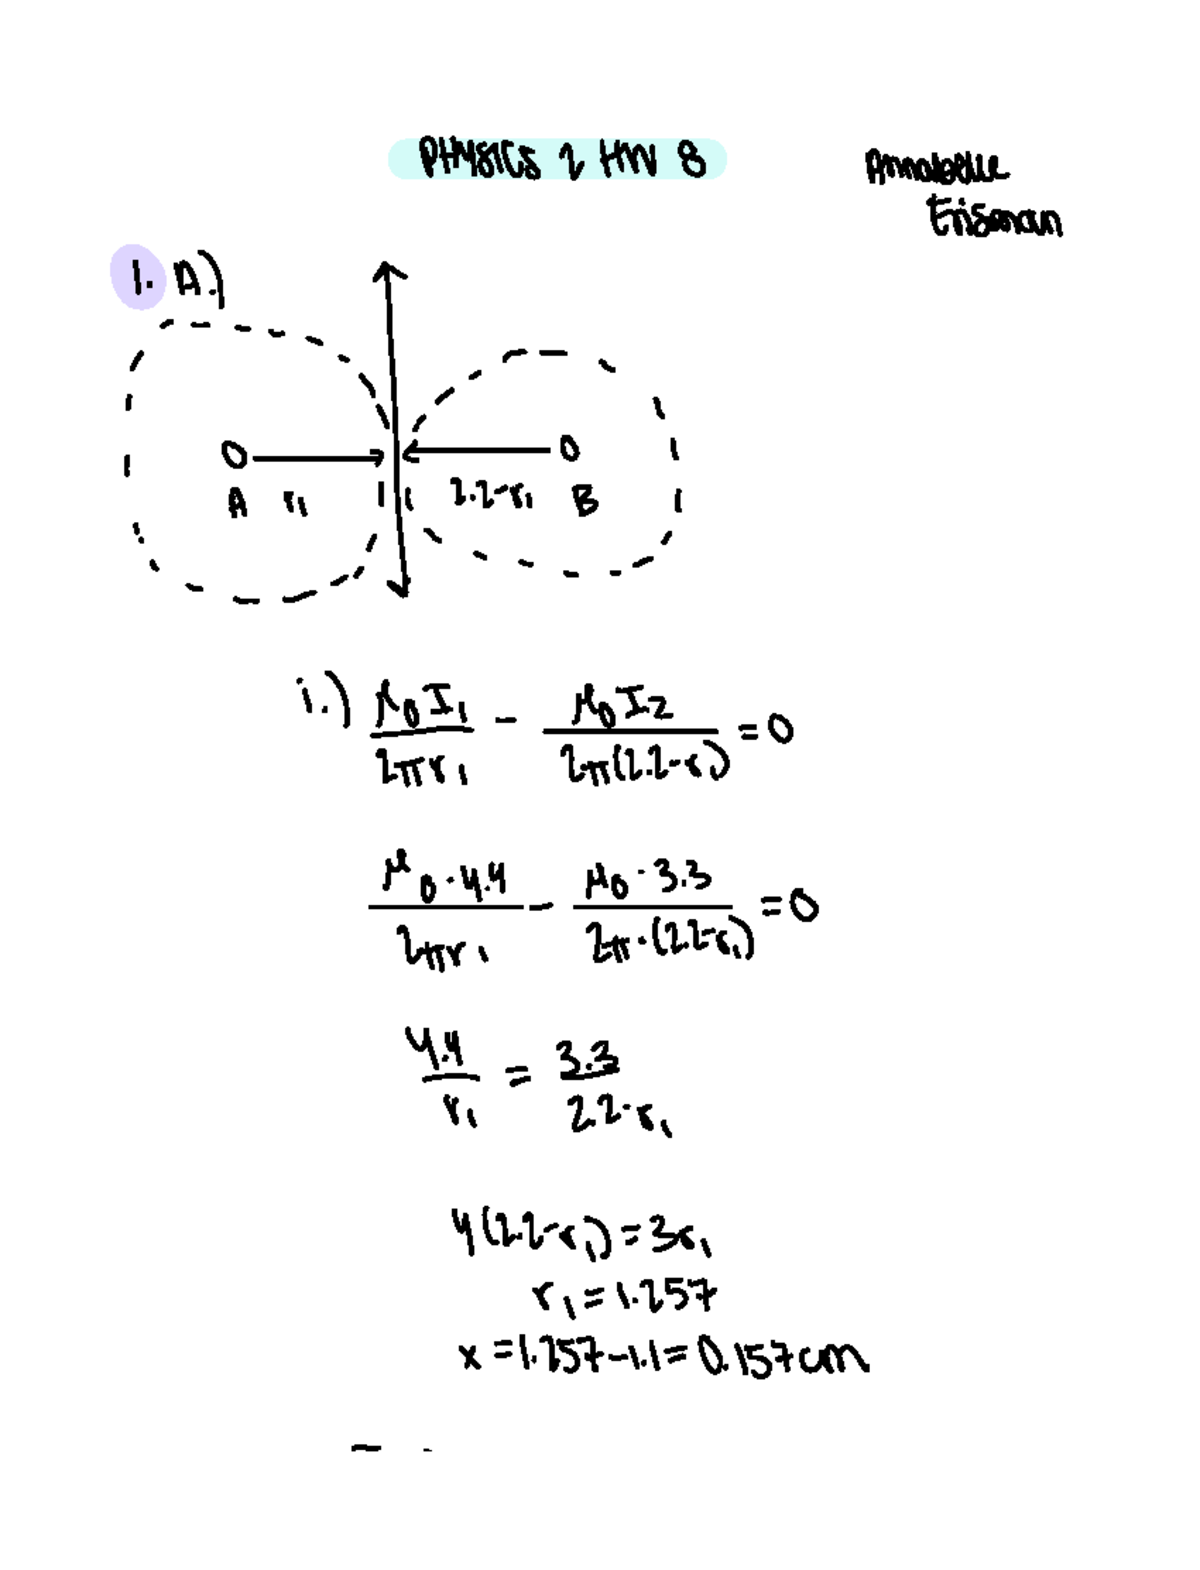 PHYSICS 2 HW 8
Annabelle
Erisman
1. A.)
A r₁ 2.2-r₁ B
i.) μ₀I₁/2πr₁ - μ₀I₂/2π(2.2-r₁) = 0
μ₀·4.4/2πr₁ - μ₀·3.3/2π·(2.2-r₁) = 0
4.4/r₁ = 3.3/2.2-r₁
4(2.2-r₁) = 3r₁
r₁ = 1.257
x = 1.257-1.1 = 0.157cm